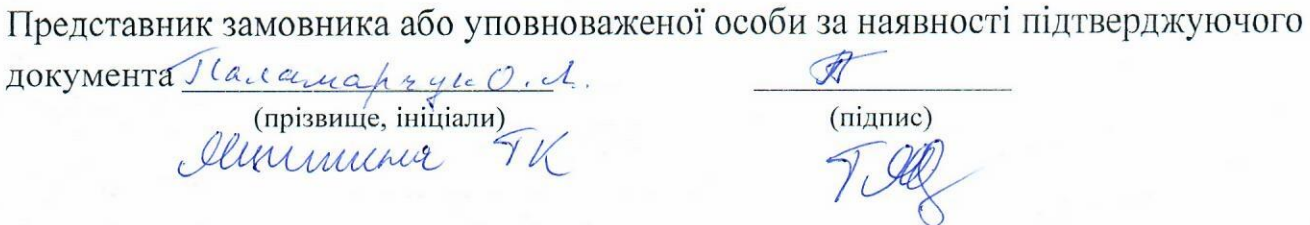 Представник замовника або уповноваженої особи за наявності підтверджуючого
документа Паламарчук О. Л.
(прізвище, ініціали) (підпис)
ТК